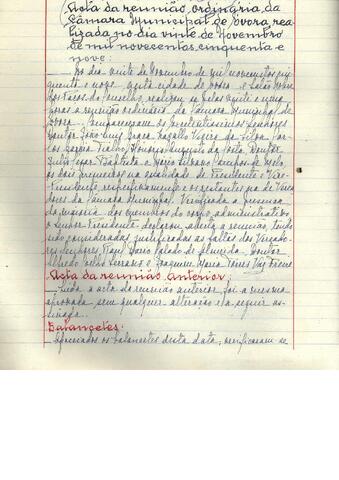 Acta da reunião ordinária da
Câmara Municipal de Évora, rea-
lizada no dia vinte de novembro
de mil novecentos, cinquenta e
nove:
Ao dia vinte de Novembro de mil novecentos cin-
quenta e nove, nesta cidade de Évora e Salão Nobre
dos Paços do Concelho, realizou-se pelas vinte e uma
horas a reunião ordinária da Câmara Municipal de
Évora. Compareceram os Excelentíssimos Senhores
Doutor João Luiz Vieira da Silva, Car-
los Fialho, Henrique Augusto da Costa, Doutor
Júlio Cesar Baptista e Mário Campos de Melo,
os dois primeiros na qualidade de Presidente e Vice-
Presidente, respectivamente e os restantes na de Verea-
dores da Câmara Municipal. Verificada a presença
da maioria dos membros do corpo administrativo
o Senhor Presidente declarou aberta a reunião, tendo
sido consideradas justificadas as faltas dos Vereado-
res Senhores de Almeida, Doutor
e Joaquim Maria
Acta da reunião anterior:
Lida a acta da reunião anterior, foi a mesma
aprovada, sem qualquer alteração e a seguir as-
sinada.
Balancetes:
Apreciados os balancetes desta data, verificaram-se